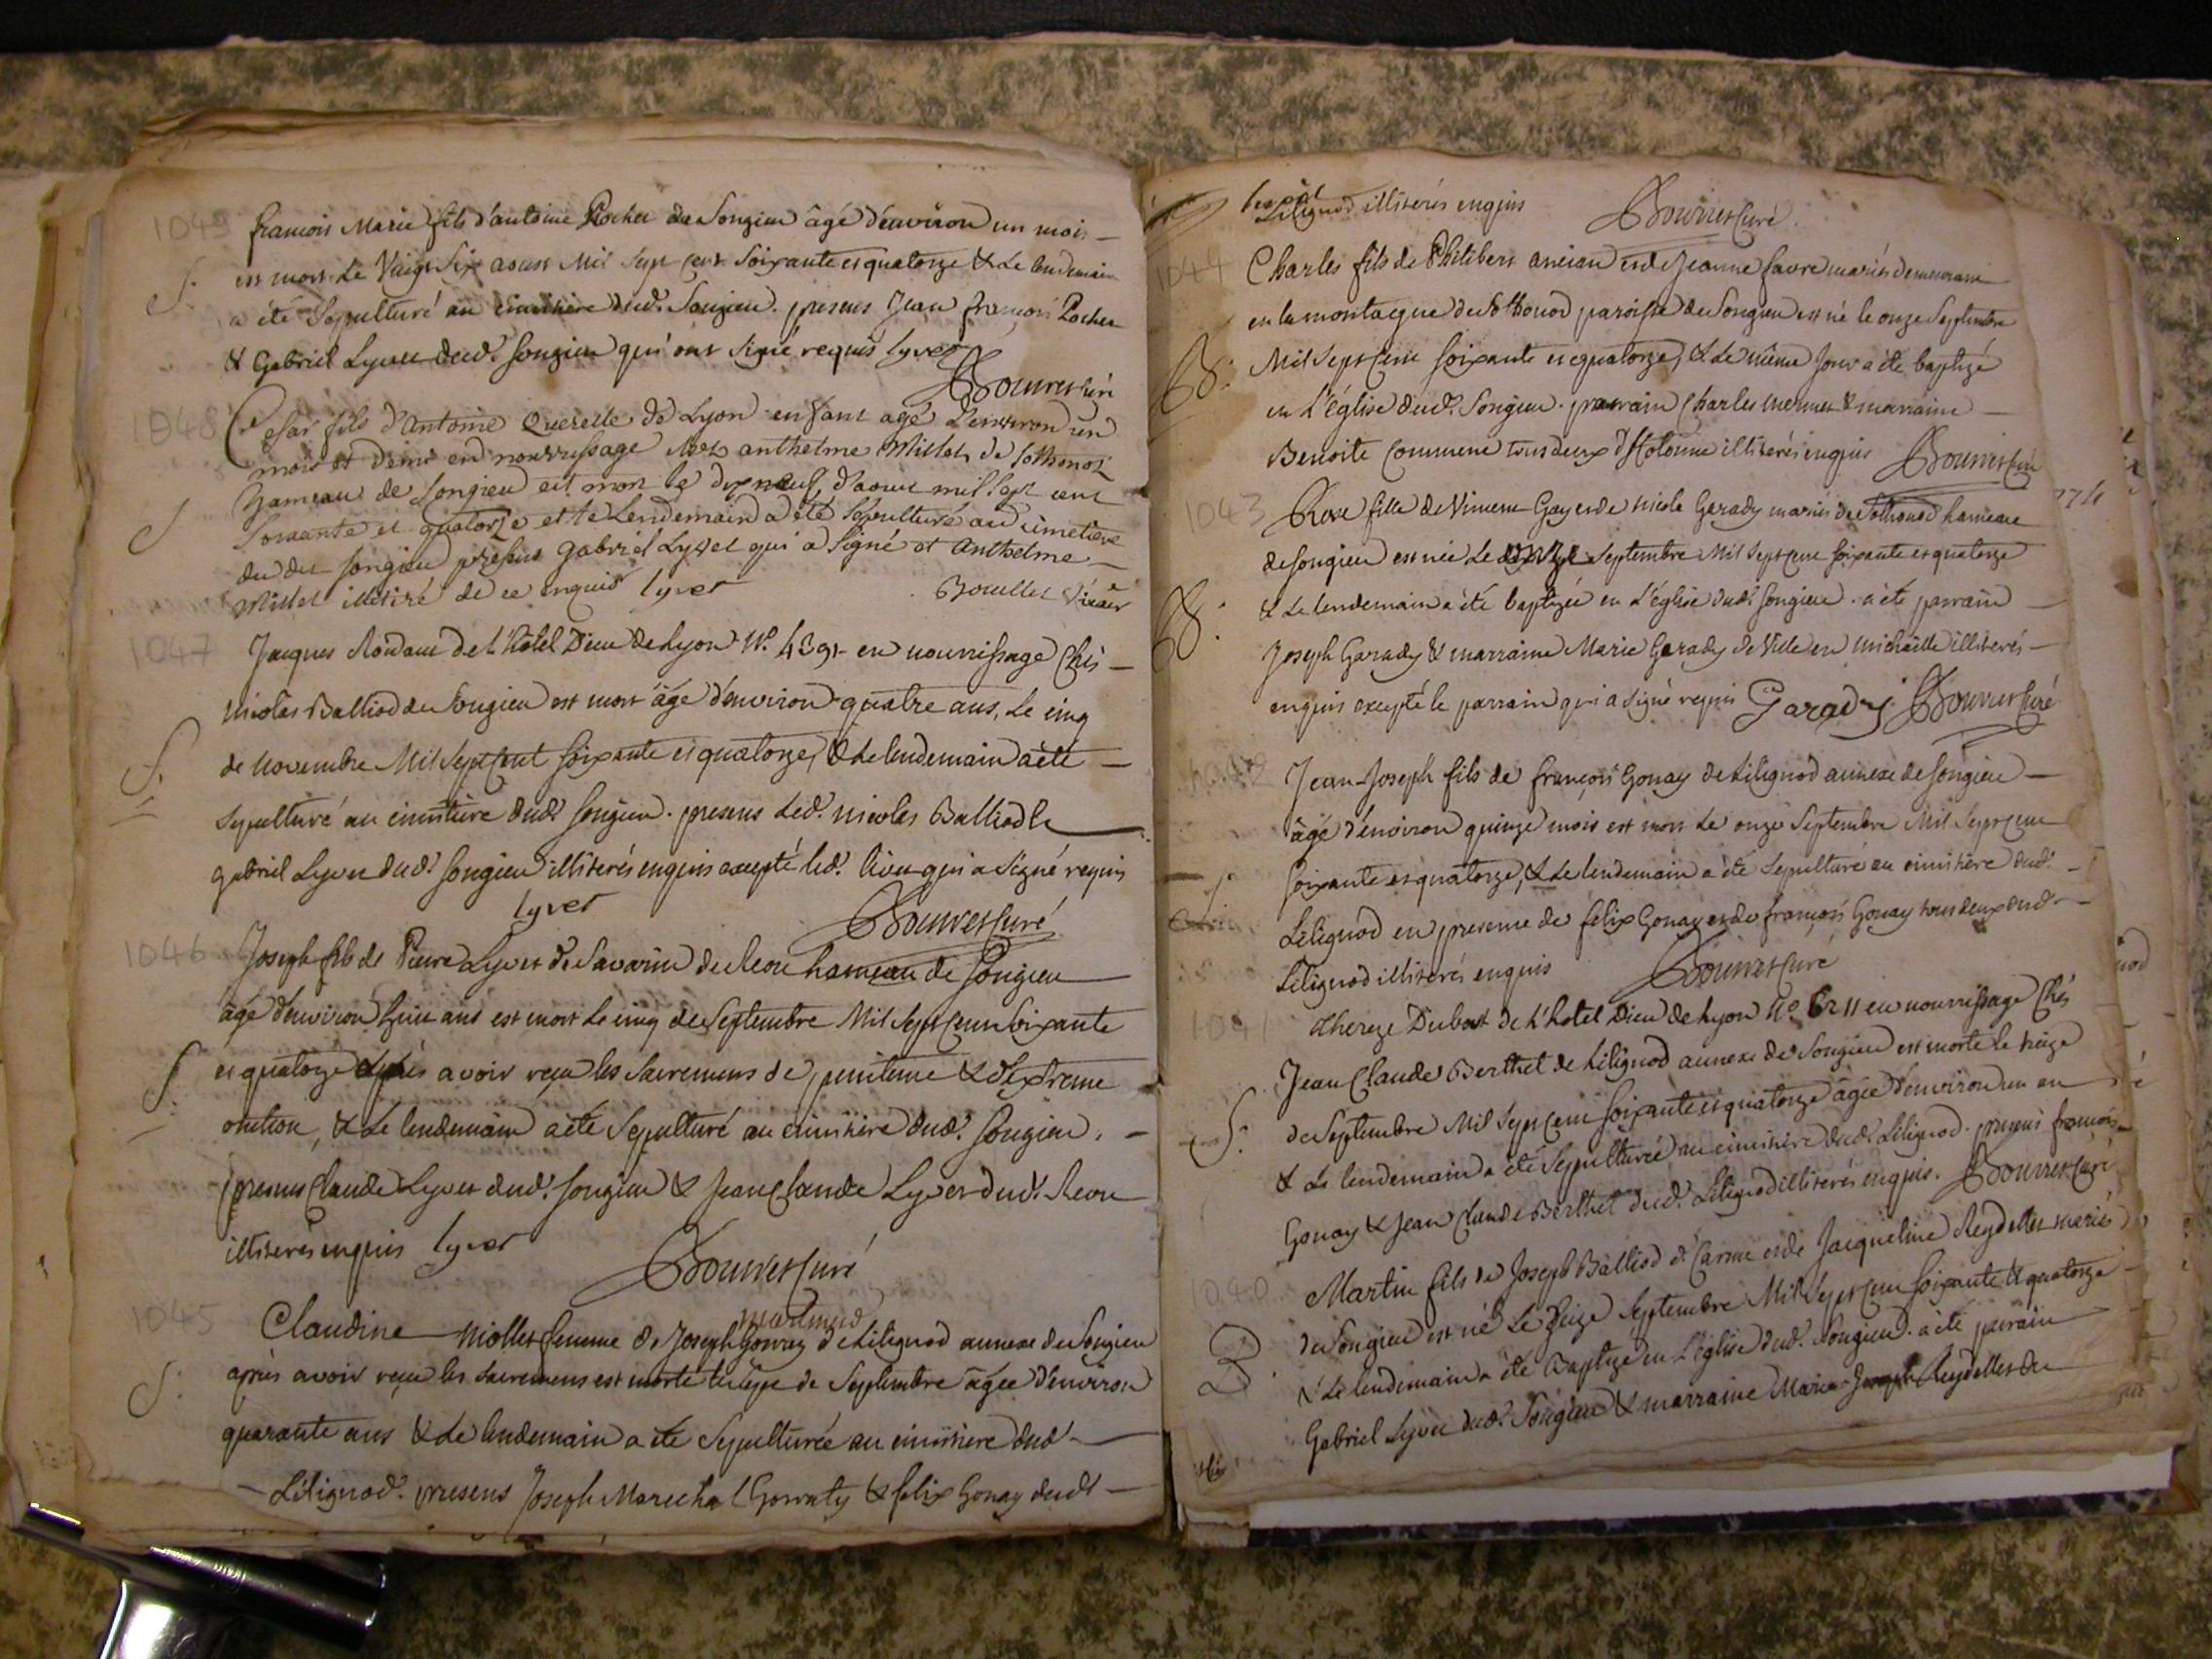 1049
francois Marie fils d'antoine Rochex de Songieu âgé d'environ un mois
S. est mort Le Vaigt Six aoust Mil Sept cent Soixante et quatorze & Le lendemain
a été Sepulturé au cimitiere dud. Songieu. presens Jean françois Rochex
& Gabriel Lyvet dud. Songieu qui ont signé requis lyvet
Bouvet Curé
1048
Cesar fils d'Antoine Querelle de Lyon enfant agé d'environ un
mois et demi en nourrissage chez anthelme Millet de Sothonoz
hameau de Songieu est mort le dix neuf d'aout mil sept cent
S soixante et quatorze et le Lendemain a été sepulturé au cimetiere
du dit Songieu presens Gabriel Lyvet qui a signé et Anthelme
Millet illitiré de ce enquis lyvet Bouillet vicaire
1047
Jacques de l'hôtel Dieu de Lyon N. 4391 en nourrissage chès
nicolas Balliod de Songieu est mort âgé d'environ quatre ans, Le cinq
S. de Novembre Mil Sept Cent Soixante et quatorze, & Le lendemain a été
sepulturé au cimitiere dud. Songieu. presens Led. nicolas Balliod &
gabriel Lyvet dud. Songieu illiterés enquis excepté led. Livet qui a Signé requis
lyvet Bouvet Curé
1046
Joseph fils de Pierre Lyvet de Savarin de hameau de Songieu
âgé d'environ huit ans est mort Le cinq de Septembre Mil Sept Cent Soixante
S. et quatorze après avoir reçu les Sacremens de penitence & d'Extreme
onction, & Le lendemain a été Sepulturé au cimitiere dud. Songieu.
presens Claude Lyvet dud. Songieu & Jean Claude Lyvet dud.
illiterés enquis lyvet
Bouvet Curé
1045
Claudine Mollet femme de Joseph Gonay de Lilignod annexe de Songieu
S. après avoir reçu les Sacremens est morte le de Septembre âgée d'environ
quarante ans & Le lendemain a été Sepulturée au cimitiere dud
Lilignod. presens Joseph Marechal & felix Gonay dudt
Lilignod illiterés enquis Bouvet Curé
1044
Charles fils de Philibert ancian et de Jeanne favre mariés demeurant
en la montagne de Sothonod paroisse de Songieu est né le onze Septembre
B. Mil Sept Cent soixante et quatorze, & Le même jour a été baptizé
en L'église dud. Songieu. parrain Charles mermet & marraine
Benoite tous deux d'Hotonne illiterés enquis Bouvet Curé
1043
Rose fille de Vincent Gay et de nicole Garady mariés de Sothonod hameau
de Songieu est née Le Septembre Mil Sept Cent Soixante et quatorze
B. & Le lendemain a été baptizée en L'église dud. Songieu. a été parrain
Joseph Garady & marraine Marie Garady de Ville en michaille illiterés
enquis excepté le parrain qui a signé requis Garady Bouvet Curé
1042
Jean-Joseph fils de françois Gonay de Lilignod annexe de Songieu
âgé d'environ quinze mois est mort Le onze Septembre Mil Sept Cent
S. soixante et quatorze, & Le lendemain a été Sepulturé au cimitiere dud.
Lilignod en presence de felix Gonay et de françois Gonay tous deux dud.
Lilignod illiterés enquis Bouvet Curé
1041
Thereze Dubost de L'hotel Dieu de Lyon N° 6211 en nourrissage Chés
Jean Claude Berthet de Lilignod annexe de Songieu est morte le treize
S. de Septembre Mil Sept Cent soixante et quatorze âgée d'environ un an
& Le lendemain a été Sepulturée au cimitiere dud. Lilignod. presens francois
Gonay & Jean Claude Berthet dud. Lilignod illiterés enquis. Bouvet Curé
1040
Martin fils de Joseph Balliod et de Jacqueline Reydellet mariés
de Songieu est né Le Septembre Mil Sept Cent soixante & quatorze
B. & Le lendemain a été Baptizé en L'église dud. Songieu. a été parrain
Gabriel Lyvet dud. Songieu & marraine Marie Reydellet du